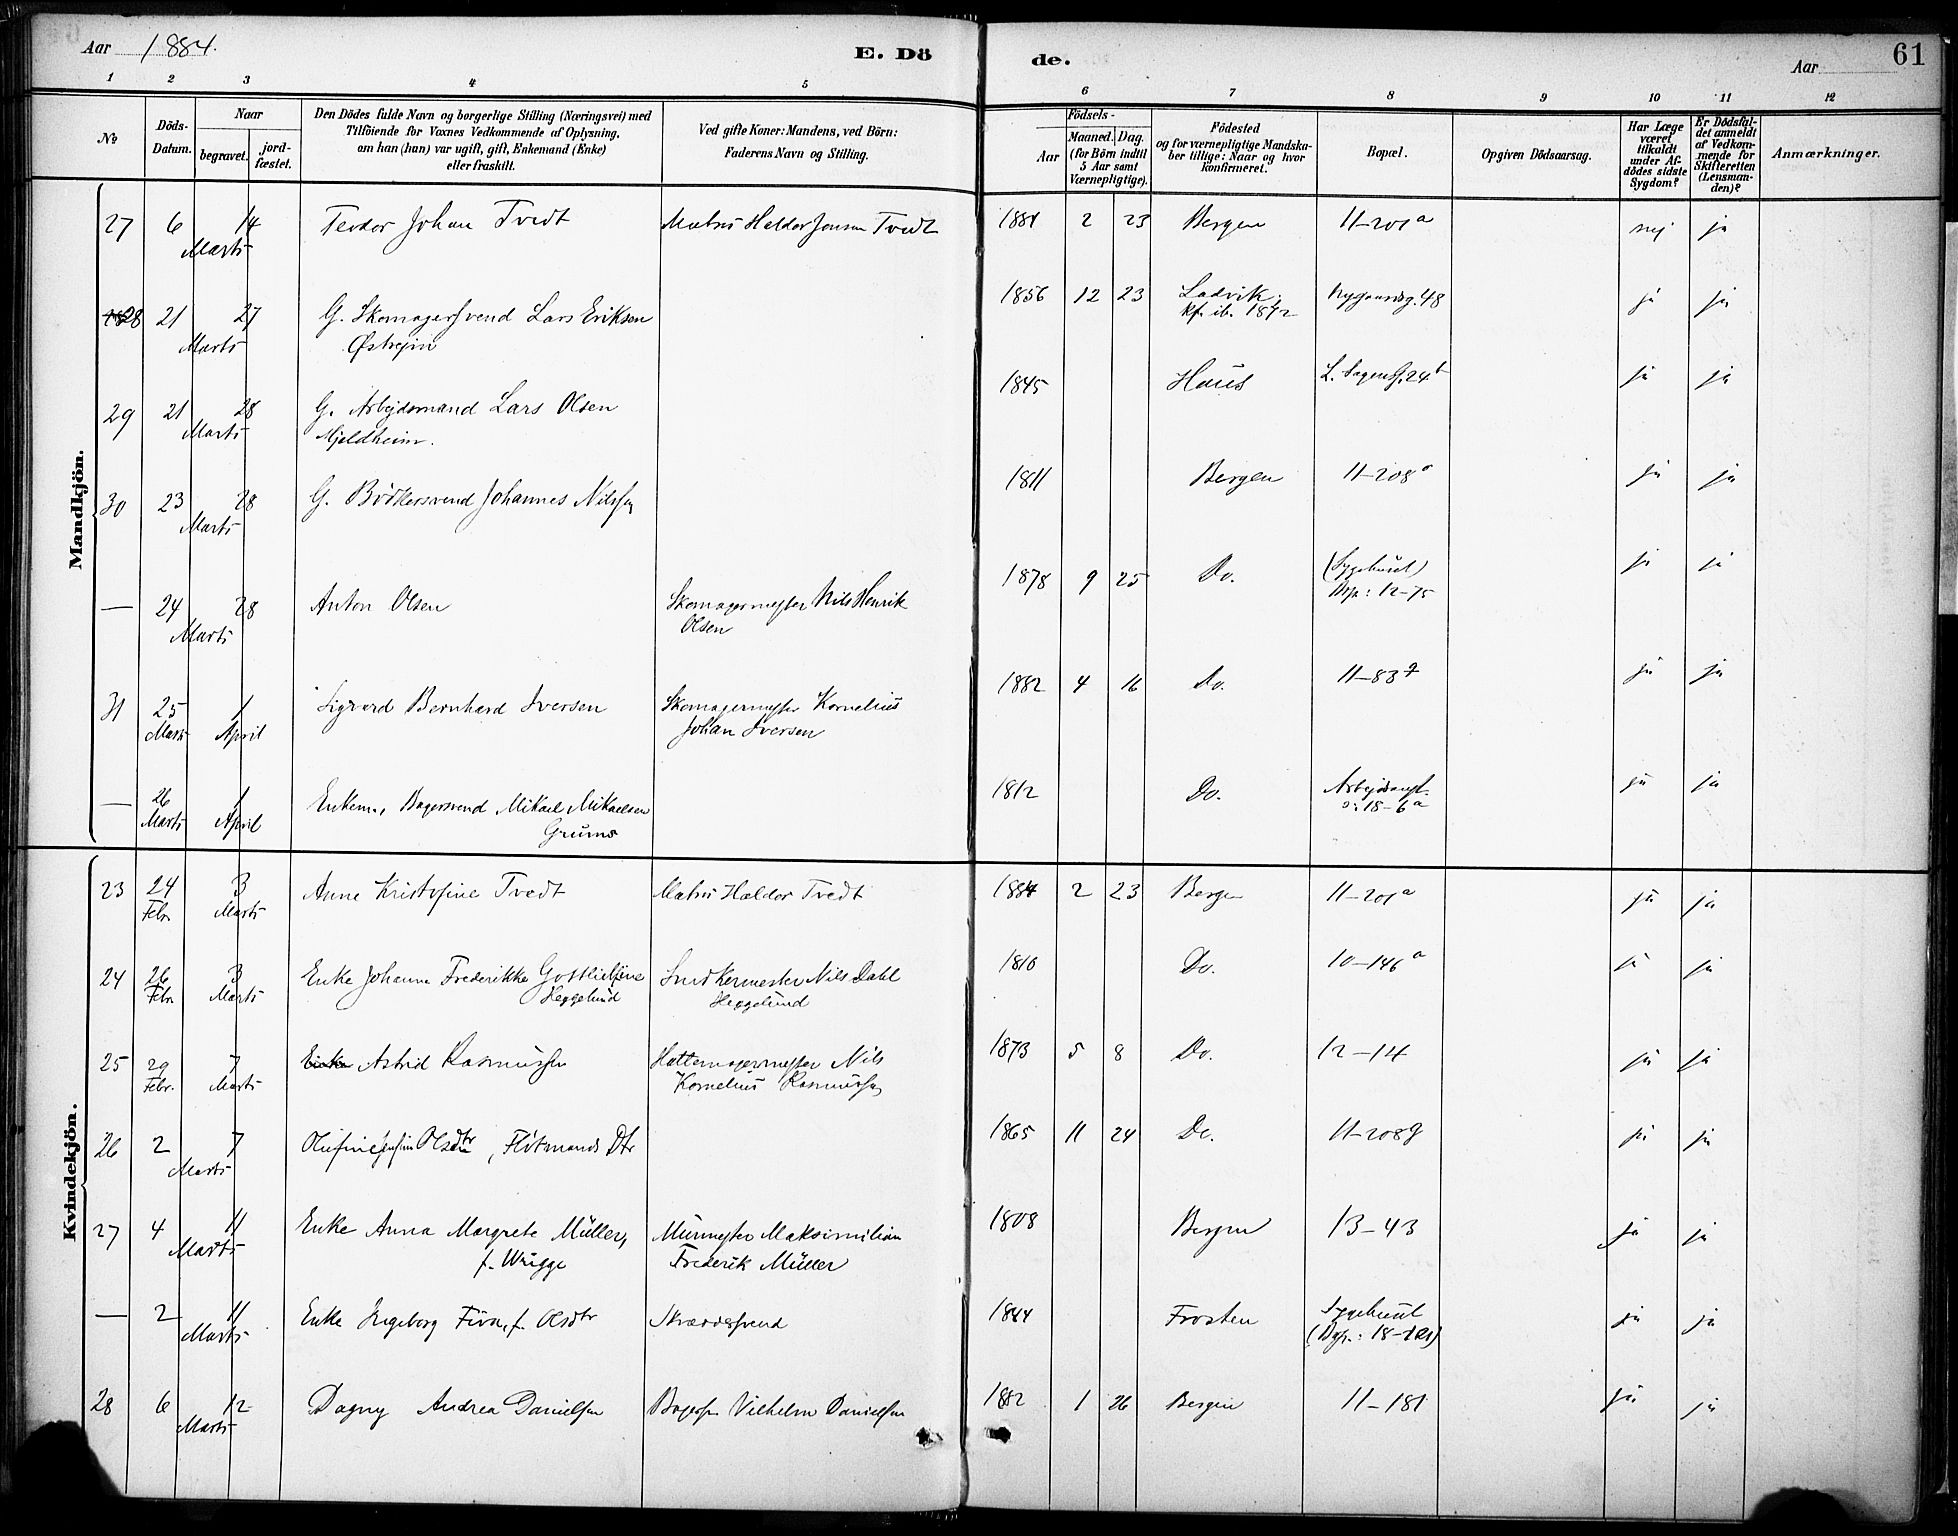 Aar 1884.
E. Dö
de.
Aar
61
1 2 3 4 5 6 7 8 9 10 11 12
No
Döds-Datum.
Naar
begravet.
jord-fæstet.
Den Dödes fulde Navn og borgerlige Stilling (Næringsvei) med
Tilföiende for Voxnes Vedkommende af Oplysning,
om han (hun) var ugift, gift, Enkemand (Enke)
eller fraskilt.
Ved gifte Koner: Mandens, ved Börn:
Faderens Navn og Stilling.
Födsels-
Aar
Maaned. Dag.
(for Börn indtil
5 Aar samt
Værnepligtige).
Födested
og for værnepligtige Mandska-
ber tillige: Naar og hvor
konfirmeret.
Bopæl.
Opgiven Dödsaarsag.
Har Læge
været
tilkaldt
under Af-
dödes sidste
Sygdom?
Er Dödsfal-
det anmeldt
af Vedkom-
mende for
Skifteretten
(Lensman-
den)?
Anmærkninger.
Mandkjön.
27 6 14 Teodor Johan Tvedt Matros Haldor Jonsen Tvedt 1884 2 23 Bergen 11-201a nej ja
Marts
28 21 27 G. Skomagersvend Lars Eriksen 1856 12 23 Ladvik, Nygaardsg. 48 ja ja
Marts Østrejm kf. ib. 1872
29 21 28 G. Arbejdsmand Lars Olsen 1845 Haus L. SagensG. 24b ja ja
Marts Mjeldheim.
30 23 28 G. Bödkersvend Johannes Nilssen 1811 Bergen 11-208a ja ja
Marts
— 24 28 Anton Olsen Skomagermester Nils Henrik 1878 9 25 Do. (Sygehuset) ja ja
Marts Olsen 12-75
31 25 1 Sigvard Bernhard Iversen Skomagermester Kornelius 1882 4 16 Do. 11-83 ja ja
Marts April Johan Iversen
— 26 1 Enkem., Bagersvend Mikael Mikaelsen 1812 Do. Arbejdsanst. ja ja
Marts April Grums 18-6a
Kvindekjön.
23 24 3 Anne Kristofine Tvedt Matros Haldor Tvedt 1884 2 23 Bergen 11-201a ja ja
Febr. Marts
24 26 3 Enke Johanne Frederikke Gottliebine Snedkermester Nils Dahl 1810 Do. 10-146a ja ja
Febr. Marts Heggelund Heggelund
25 29 7 Enke Astrid Rasmussen Hattemagermester Nils 1873 5 8 Do. 12-14 ja ja
Febr. Marts Kornelius Rasmussen
26 2 7 Olufine Olsdtr, Flötmands Dtr 1865 11 24 Do. 11-208g ja ja
Marts
27 4 11 Enke Anna Margrete Müller, Murmester Maksimilian 1808 Bergen 13-43 ja ja
Marts f. Wrigge Frederik Müller
— 2 11 Enke Ingeborg f. Olsdtr Skræddersvend 1844 Frosten Sygehuset ja ja
Marts
28 6 12 Dagny Andrea Danielsen Vilhelm Danielsen 1882 1 26 Bergen 11-181 ja ja
Marts